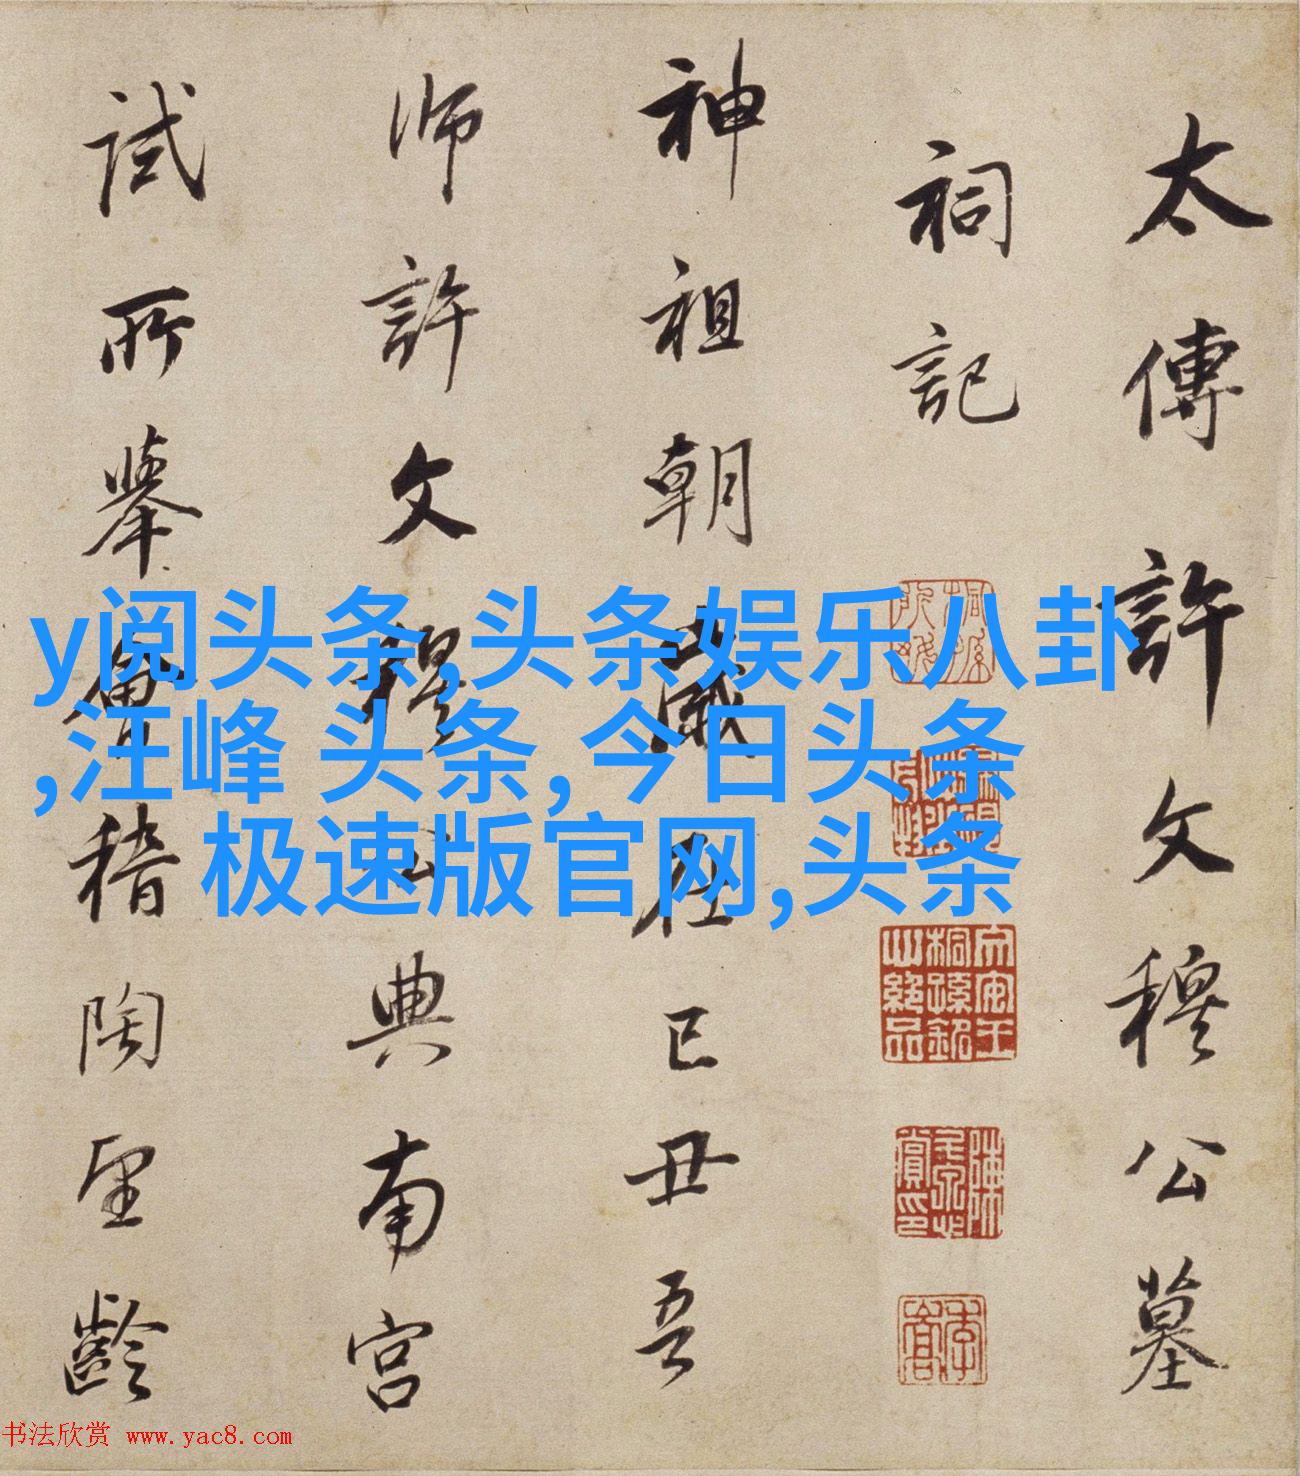 太傳許文穆公墓
祠記
神祖朝歲在己丑吾
師許文穆公典南宮
試所舉會稽陶望齡
y阅头条,头条娱乐八卦
,汪峰 头条,今日头条
极速版官网,头条
书法欣赏 www.yac8.com